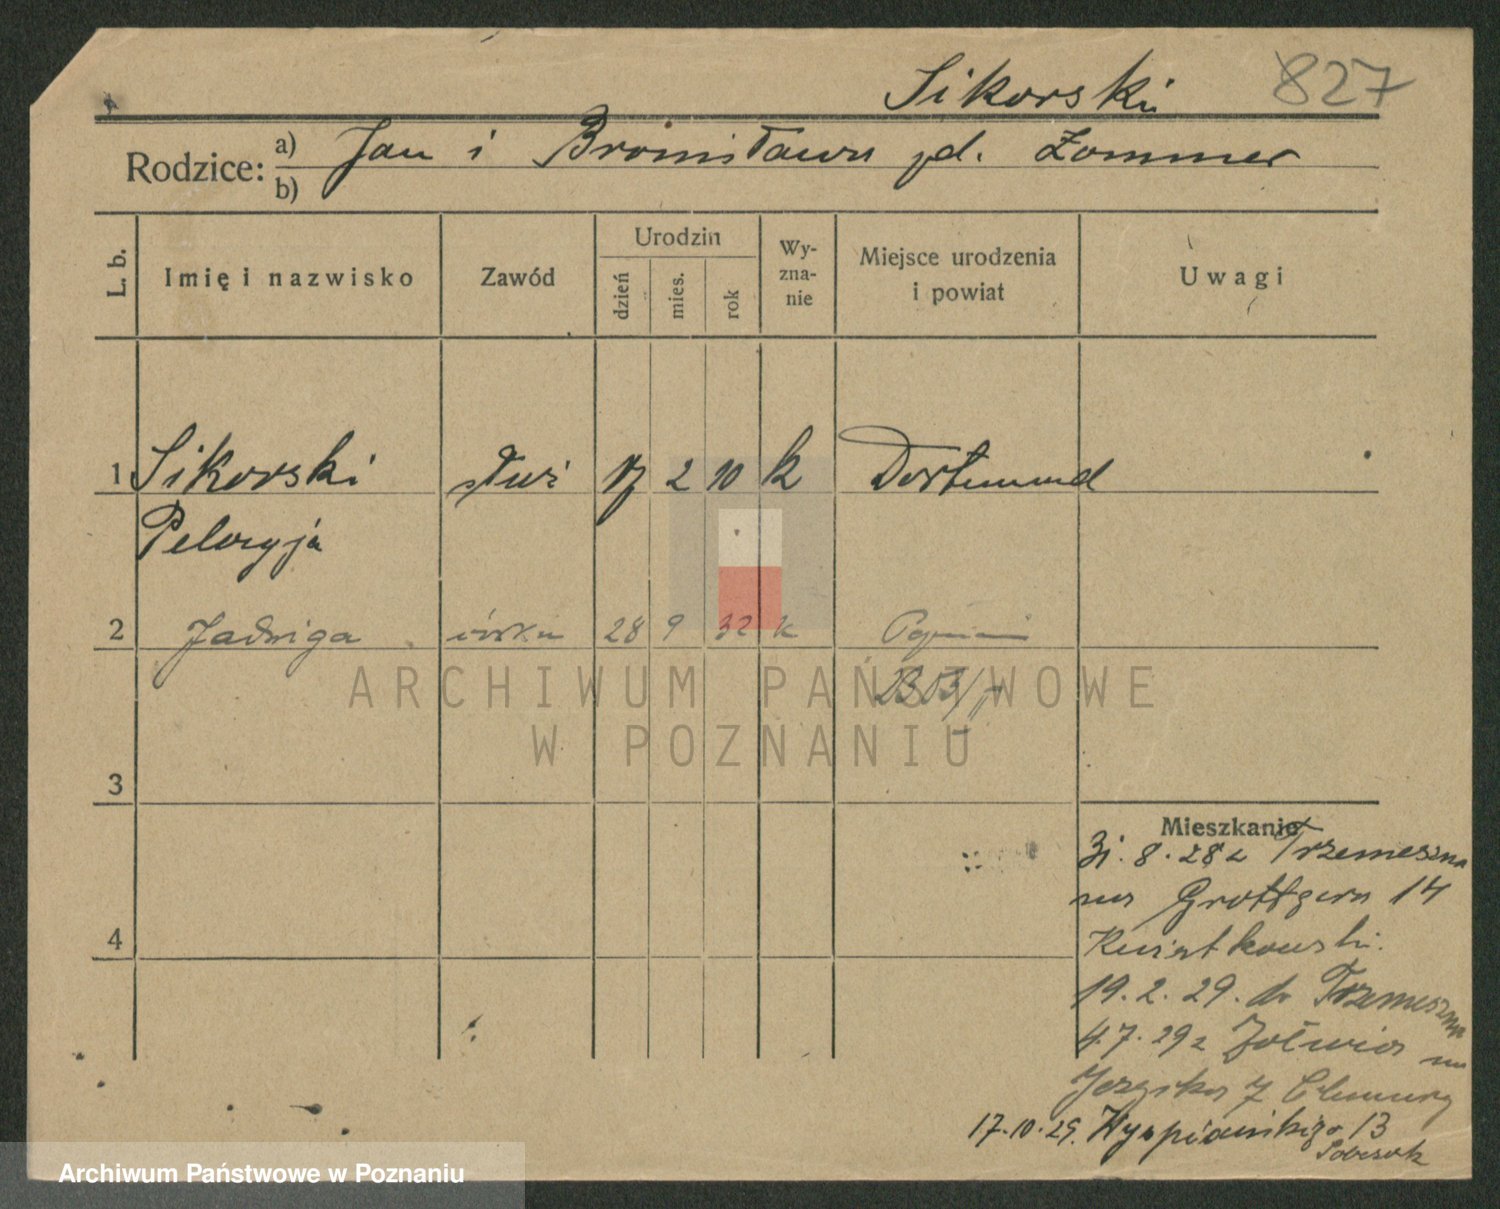 Sikorski 827
Rodzice: a) b) Jan i Bronisława zd. Zommer
L. b. Imię i nazwisko Zawód Urodzin dzień mies. rok Wy-zna-nie Miejsce urodzenia i powiat Uwagi
1 Sikorski służ 17 2 10 k Dortmund
Pelagja
2 Jadwiga córka 28 9 32 k Poznań
2303/
3
Mieszkanie
31. 8. 28 z Trzemeszna
na Grottgera 14
4 Kwiatkowski.
19. 2. 29. do Trzemeszna
4. 7. 29 z Żółwia na
7
17. 10. 29. Wyspiańskiego 13
ARCHIWUM PAŃSTWOWE
W POZNANIU
Archiwum Państwowe w Poznaniu